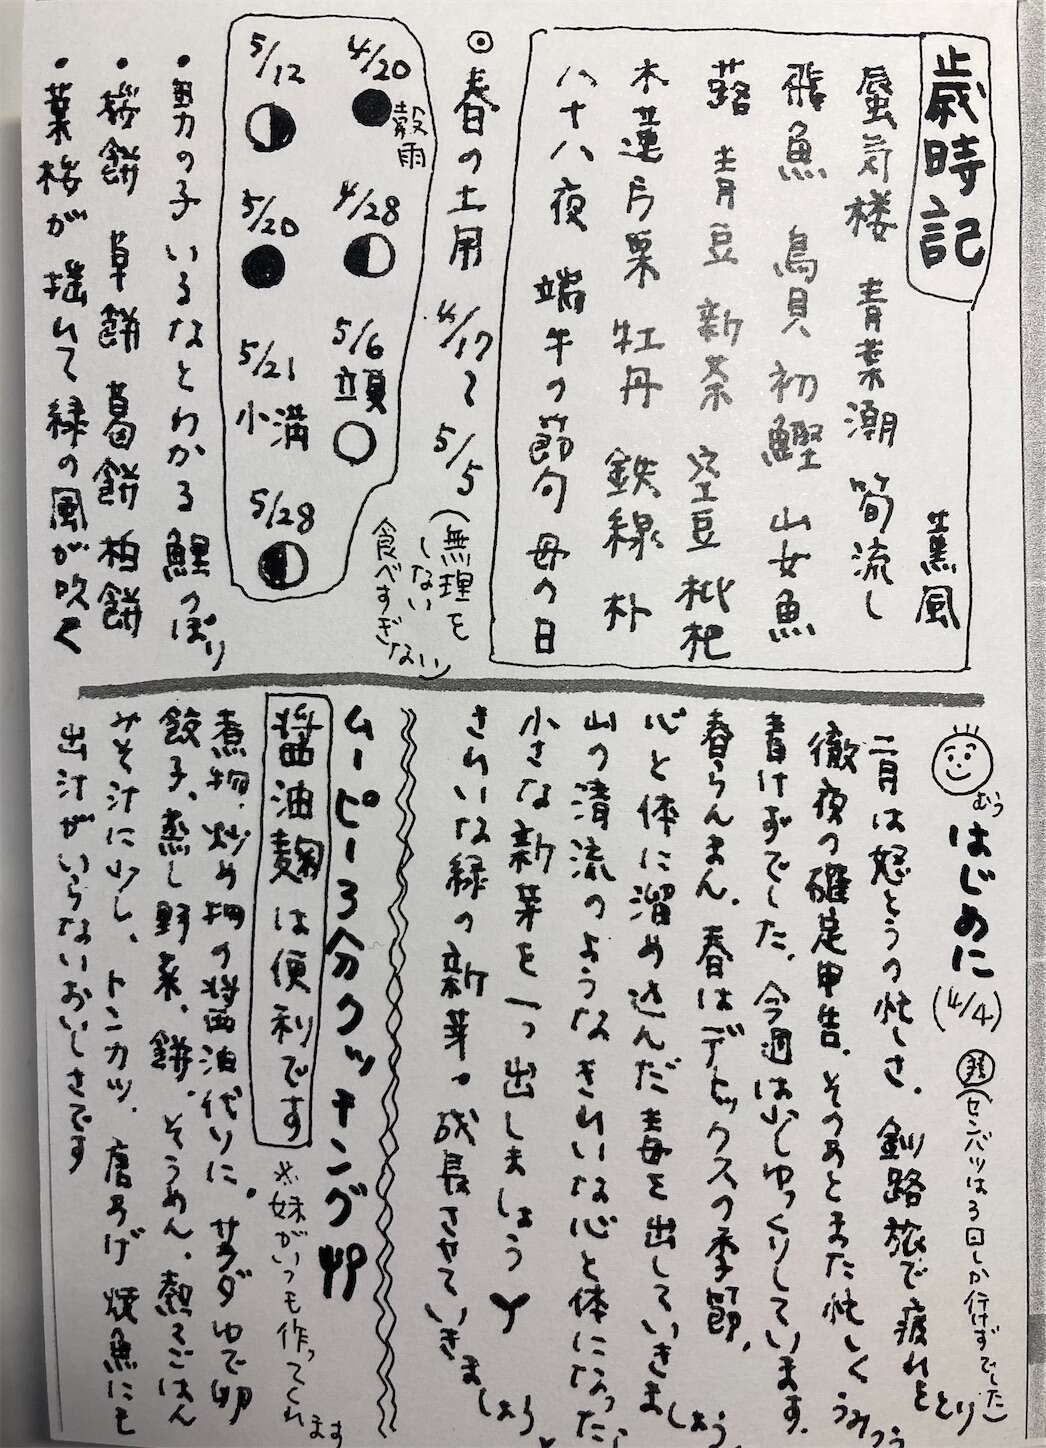 歳時記
薫風
蜃気楼 青葉潮 筍流し
飛魚 鳥貝 初鰹 山女魚
蕗 青豆 新茶 空豆 枇杷
木蓮 片栗 牡丹 鉄線 朴
八十八夜 端午の節句 母の日
春の土用 4/17〜5/5 (無理を
しない
食べすぎない)
4/20
穀雨
4/28
5/6
立夏
5/12
5/20
5/21
小満
5/28
・男の子いるなとわかる鯉のぼり
・桜餅 草餅 葛餅 柏餅
・葉桜が揺れて緑の風が吹く
はじめに (4/4)
(センバツは3日しか行けずでした)
二月は怒とうの忙しさ。釧路旅で疲れをとり
徹夜の確定申告。そのあとまた忙しく
書けずでした。今週は少しゆっくりしています。
春らんまん。春はデトックスの季節。
心と体に溜め込んだ毒を出していきましょう
山の清流のようなきれいな心と体になったら
小さな新葉を一つ出しましょう
きれいな緑の新芽。成長させていきましょう
ムーピー3分クッキング
醤油麹は便利です
※妹がいつも作ってくれます
煮物、炒め物の醤油代りに。サラダ ゆで卵
餃子、蒸し野菜、餅、そうめん、熱々ごはん
みそ汁に少し、トンカツ、唐あげ 焼魚にも
出汁がいらないおいしさです